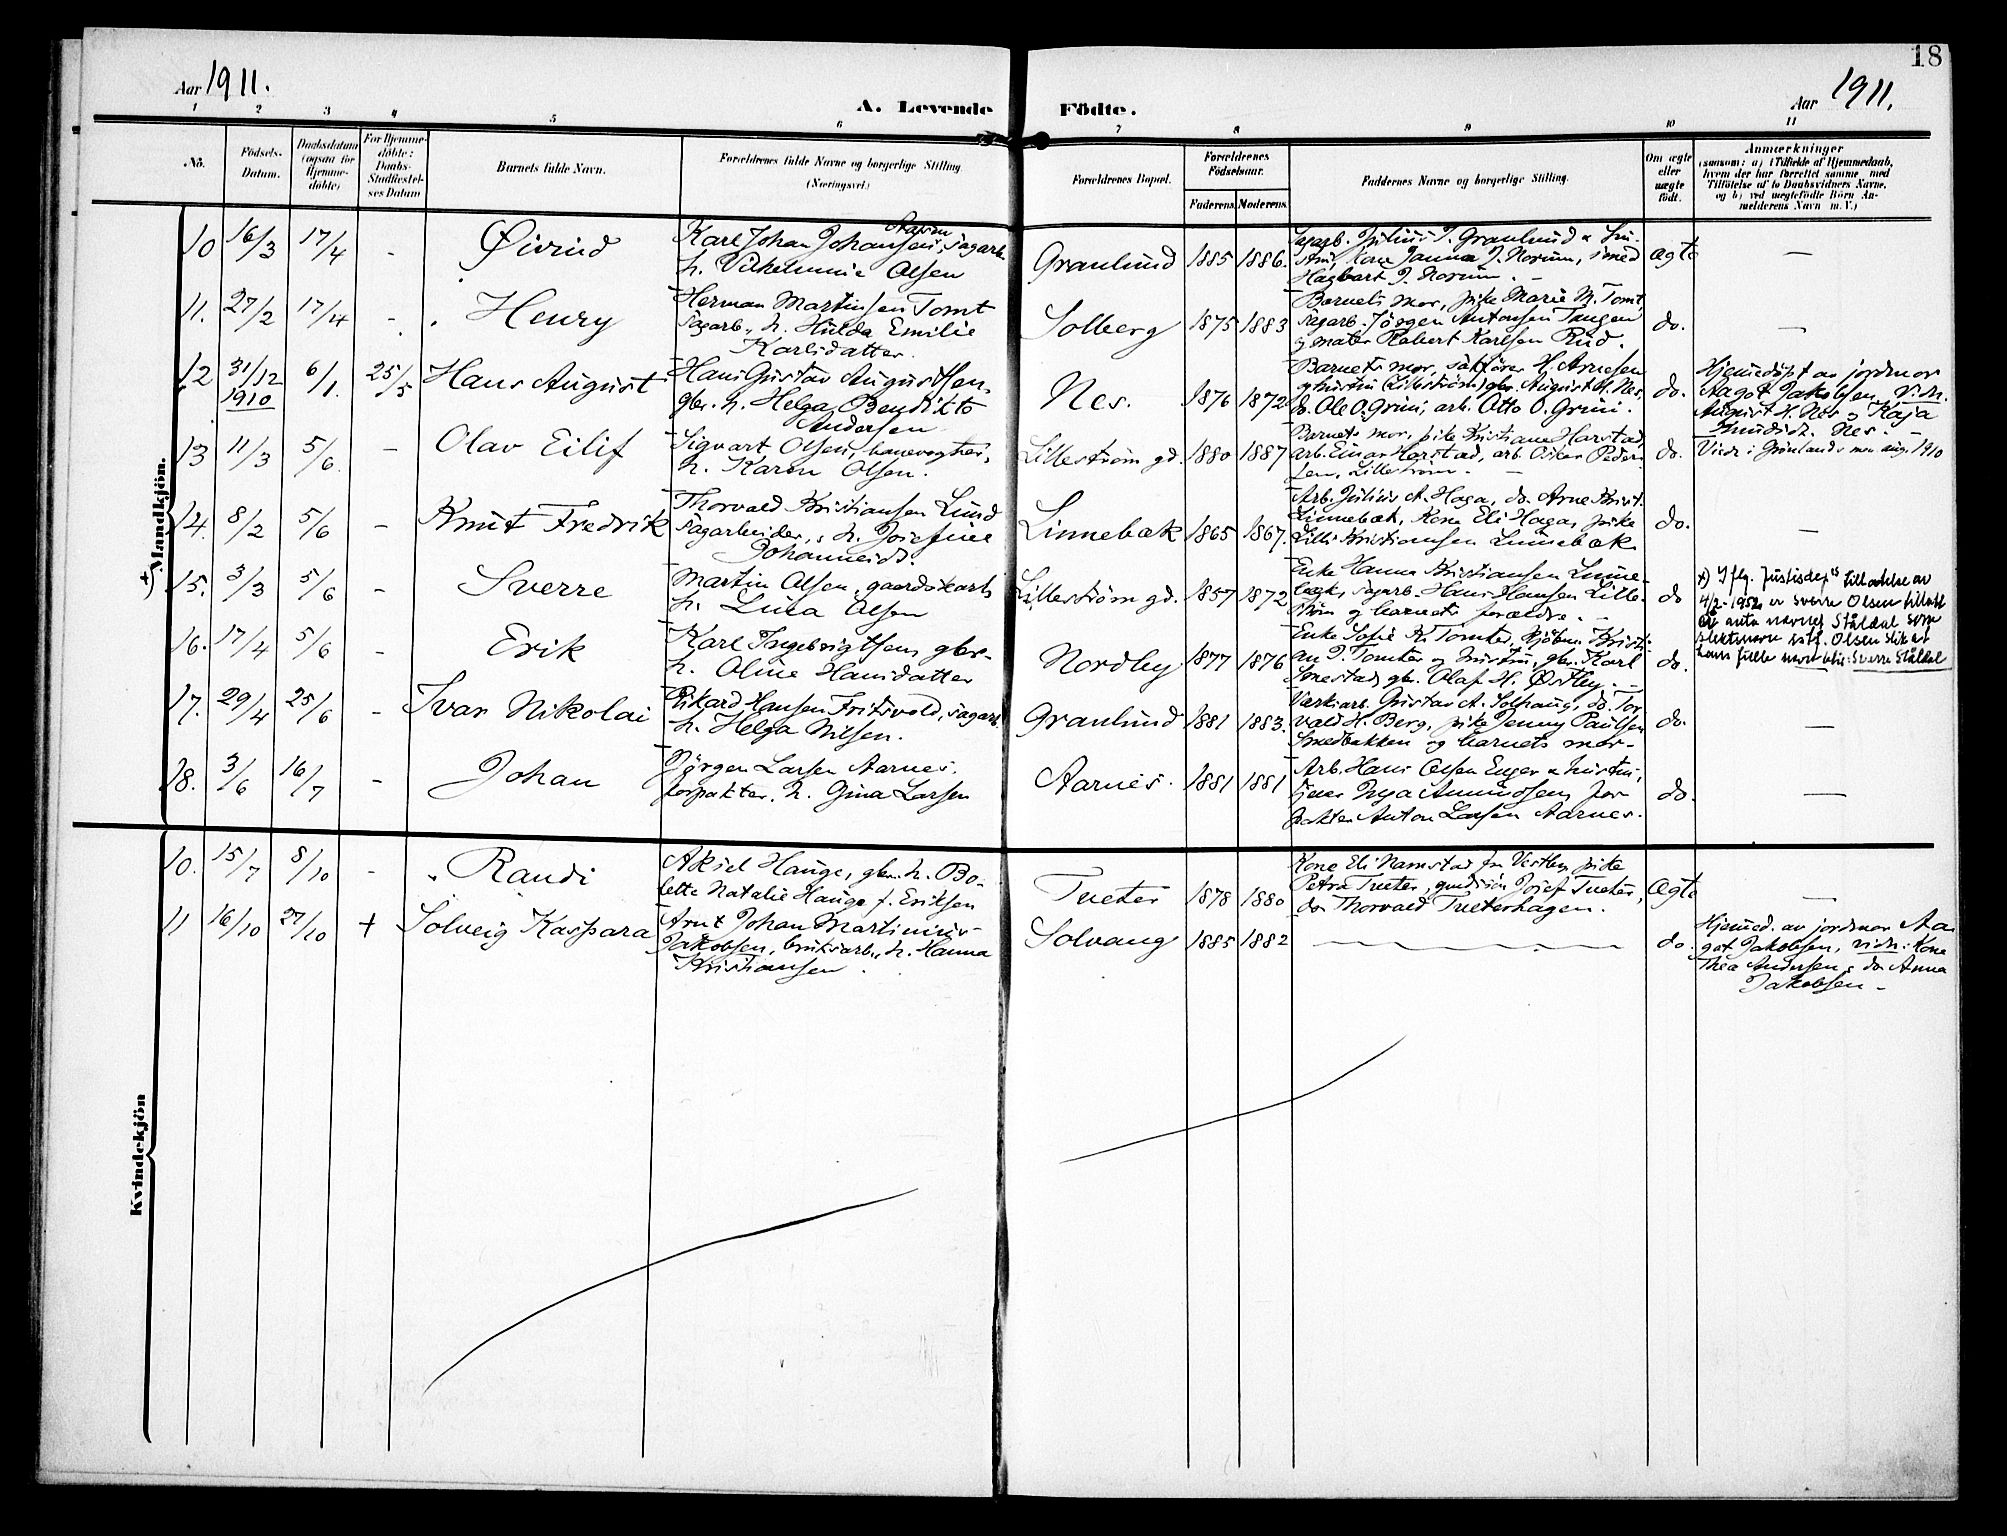 18
Aar 1911.
A. Levende Födte.
Aar 1911.
1 2 3 4 5 6 7 8 9 10 11
No.
Födsels-Datum.
Daabsdatum (ogsaa for Hjemme-döbte)
For Hjemme-döbte: Daabs-Stadfæstel-ses Datum
Barnets fulde Navn.
Forældrenes fulde Navne og borgerlige Stilling (Næringsvei.)
Forældrenes Bopæl.
Forældrenes Födselsaar.
Faderens. Moderens.
Faddernes Navne og borgerlige Stilling.
Om ægte eller uægte födt.
Anmærkninger
(saasom: a) i Tilfælde af Hjemmedaab,
hvem der har forrettet samme, med
Tilföielse af to Daabsvidners Navne,
og b) ved uægtefödte Börn An-
melderens Navn m. V.)
Mandkjön.
10 16/3 17/4 - Øivind
Karl Johan Johansen, sagarb.
h. Vilhelmine Olsen
Granlund 1885 1886.
Sagarb. Julius J. Granlund &
Kone Janna J. Norum, smed
Hagbart J. Norum. -
ægte —
11. 27/2 17/4 - Henry
Herman Martinsen Tomt
sagarb., h. Hulda Emilie
Karlsdatter.
Solberg 1875 1883
Barnets mor, pike Marie M. Tomt,
sagarb. Jørgen Antonsen Tangen
Robert Karlsen Rud.
do. —
12 31/12 1910 6/1. 25/5 Hans August
Hans Gustav Augustsen
gbr. h. Helga Bendikte
Andersen
Nes. 1876 1872
Barnets mor, H. Arnesen
og hustru (Lilleström) gbr. August H. Nes,
do. Ole O. Gruni, arb. Otto O. Gruni.
do.
Hjemmedöbt av jordmor
Aagot Jakobsen, Vidn.
August H. Nes og Kaja
Nes. -
13 11/3 5/6. - Olav Eilif
Sigvart Olsen, banevogter,
h. Karen Olsen.
Lilleström gd. 1880 1887
Barnets mor, pike Kristiane Harstad,
arb. Einar Harstad, arb. Oskar Peder-
sen, Lilleström. -
do.
Viede i Grönlands aug. 1910
14. 8/2 5/6 - Knut Fredrik
Thorvald Kristiansen Lund
sagarbeider, h. Josefine
Johannesd.
Linnebæk 1865 1867.
Arb. Julius A. Haga, do. Arne Krist.
Linnebæk, Kone Eli Haga, pike
Lilli Kristiansen Linnebæk.
do. —
+) 15. 3/3 5/6 - Sverre
Martin Olsen, gaardskarl
h. Lina Olsen
Lilleström gd. 1857 1872
Enke Hanna Kristiansen Linne-
bæk, sagarb. Hans Hansen Lille-
ström og barnets forældre. -
do
x) Iflg. Justisdep's tilladelse av
4/2-1952 er Sverre Olsen tillatt
å anta navnet Ståldal som
slektsnavn istf. Olsen slik at
hans fulle navn blir: Sverre Ståldal
16. 17/4 5/6 - Erik
Karl Ingebrigtsen, gbr.
h. Oline Hansdatter
Nordby 1877 1876
Enke Sofie K. Tomter, kjöbm. Kristi-
an J. Tomter og hustru, gbr. Karl
gbr. Olaf H. Østby. -
do. —
17. 29/4 25/6 - Ivar Nikolai
Rikard Hansen Fritsvold, sagarb.
h. Helga Nilsen.
Granlund 1881 1883.
Verksarb. Gustav A. Solhaug, do. Tor-
vald H. Berg, pike Jenny Paulsen
Smedbakken og barnets mor.
do. —
18. 3/6 16/7 - Johan
Jörgen Larsen Aarnes,
forpakter, h. Gina Larsen
Aarnes. 1881 1881
Arb. Hans Olsen Enger & hustru,
Inga Amundsen, for-
pakter Anton Larsen Aarnes.
do. —
Kvindekjön
10. 15/7 8/10 - Randi
Aksel Hauge, gbr. h. Bo-
lette Natalie Hauge f. Eriksen
Tueter 1878 1880
Kone Eli Namstad fra Vestby, pike
Petra Tueter, Josef Tueter,
do. Thorvald Tueterhagen.
ægte —
11 16/10 27/10 + Solveig Kaspara
Arnt Johan Martinius
Jakobsen, bruksarb., h. Hanna
Kristiansen.
Solvang 1885 1882
do.
Hjemmed. av jordmor Aa-
got Jakobsen, vidn: Kone
Thea Andersen, do Anna
Jakobsen -